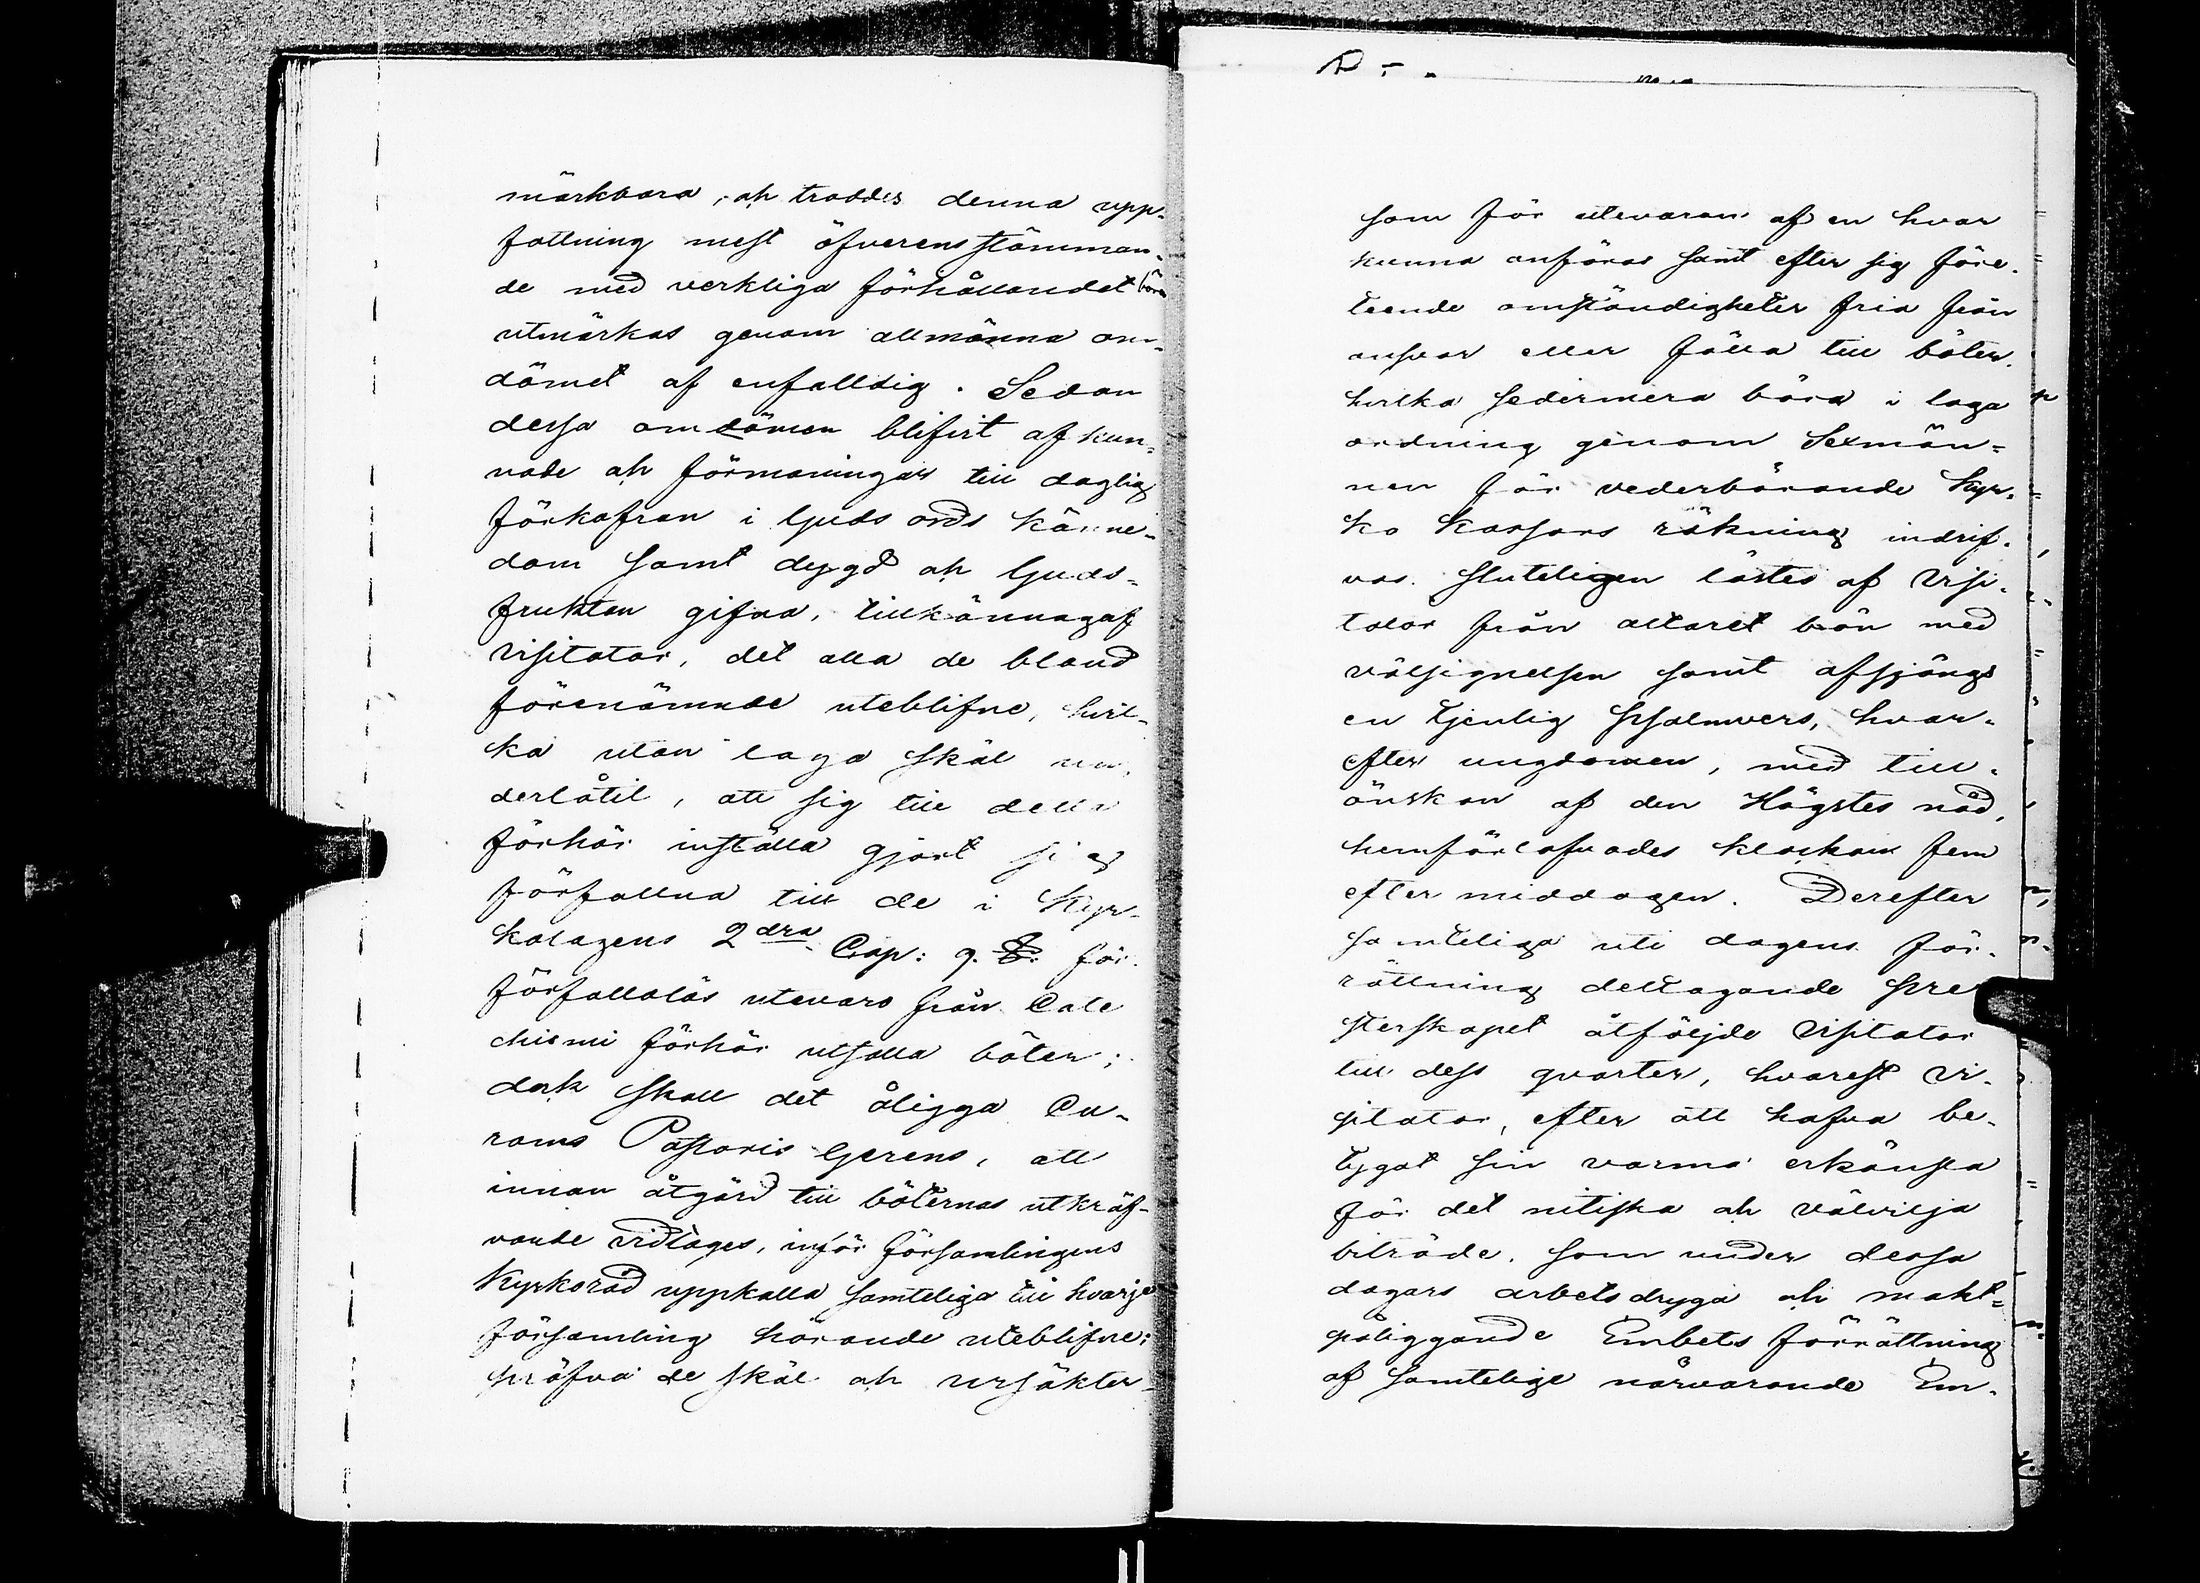 märkbara, och troddes denna upp-
fattning mest öfverensstämman-
de med verkliga förhållandet böra
utmärkas genom allmänna om-
dömet af enfalldig. Sedan
dessa omdömen blifvit afkun-
nade och förmaningar till daglig
förkofran i Guds ords känne-
dom samt dygd och Guds-
fruktan gifna, tillkännagaf
visitator, det alla de bland
förenämnde uteblifne, hvil-
ka utan laga skäl un-
derlåtit, att sig till detta
förhör inställa gjort sig
förfallna till de i Kyr-
kolagens 2dra Cap: 9. §. för
förfallolös utevaro från Cate
chismi förhör utsatta böter;
dock skall det åligga Cu-
rams Pastoris Gerens, att
innan åtgärd till böternas utkräf-
vande vidtages, inför församlingens
Kyrkoråd uppkalla samteliga till hvarje
församling hörande uteblifne;
pröfva de skäl och ursäkter
som för utevaron af en hvar
kunna anföras samt efter sig före-
teende omständigheter fria från
ansvar eller fälla till böter.
hvilka sedermera böra i laga
ordning genom Sexmän-
nen för vederbörande Kyr-
ko kassors räkning indrif-
vas. Sluteligen lästes af Visi-
tator från altaret bön med
välsignelsen samt afsjöngs
en tjenlig psalmvers, hvar-
efter ungdomen, med till-
önskan af den Högstes nåd,
hemförlofvades klockan fem
efter middagen. Derefter
samteliga uti dagens för-
rättning deltagande pre
sterskapet åtföljde Visitator
till dess qvarter, hvarest Vi-
sitator, efter att hafva be-
tygat sin varma erkänsla
för det nitiska och välvilja
biträde, som under dessa
dagars arbetsdryga och makt-
påliggande Embets förrättning
af samtelige närvarande Em-